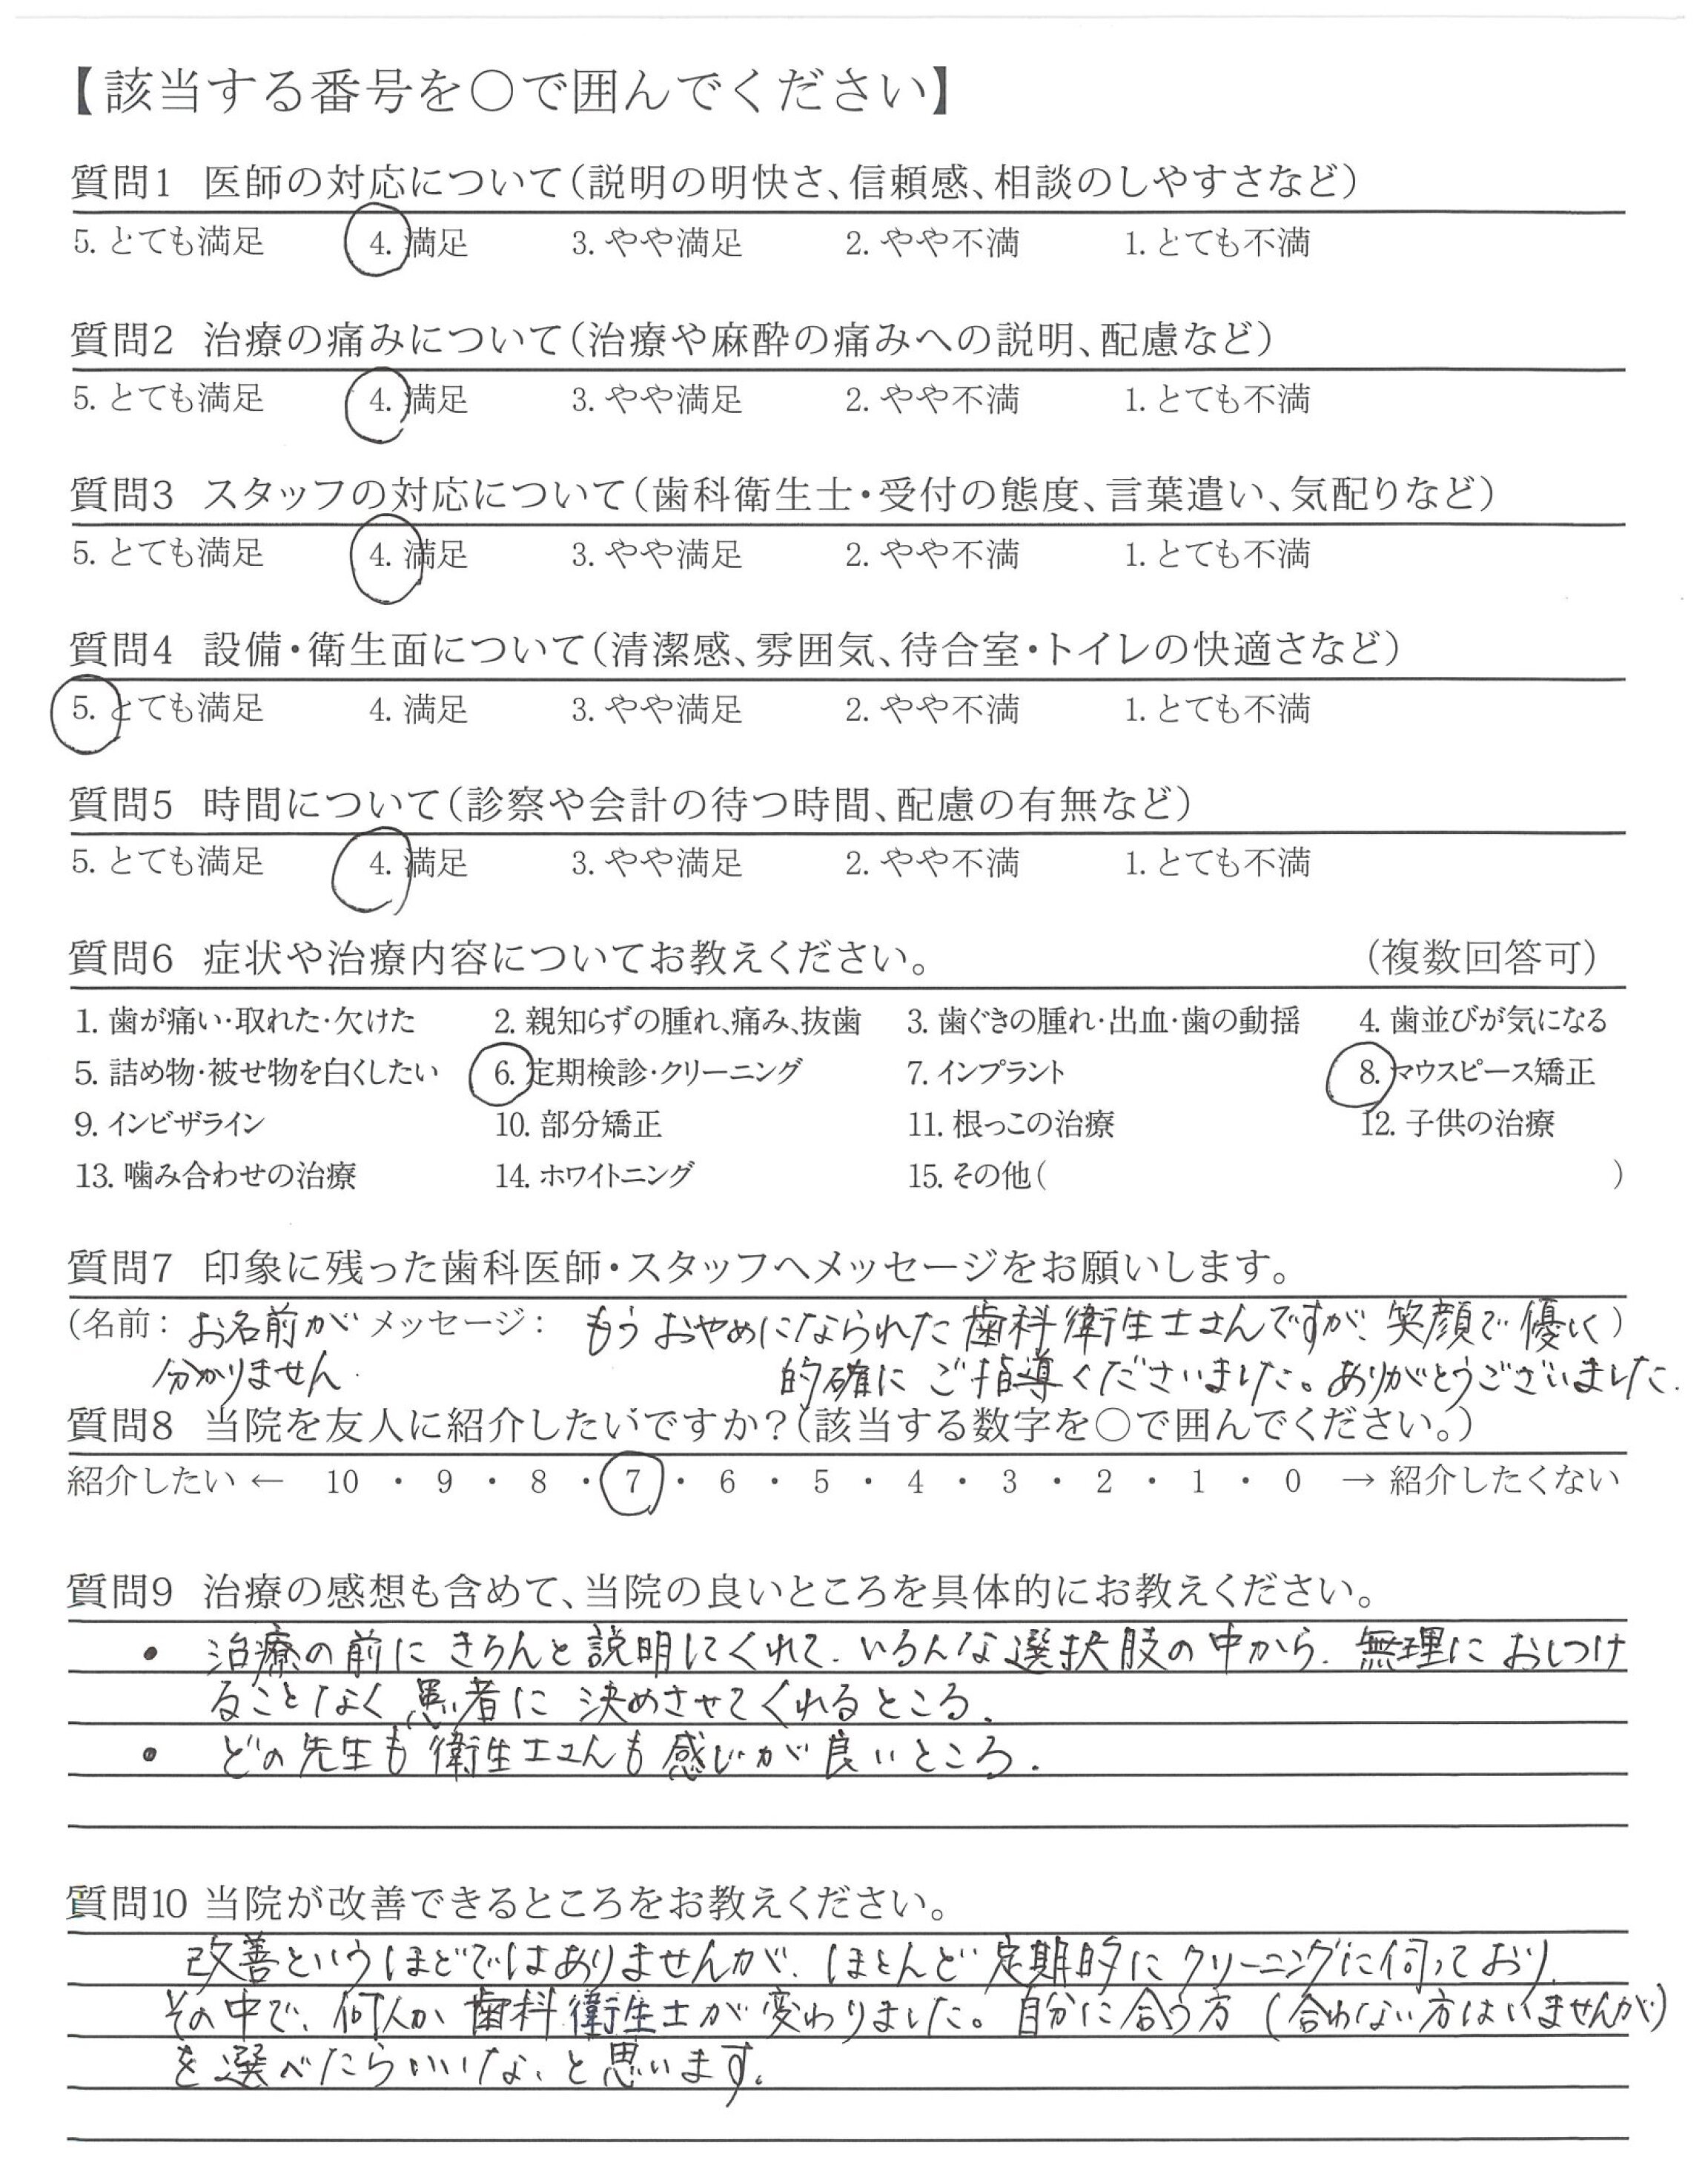 【該当する番号を〇で囲んでください】
質問1 医師の対応について(説明の明快さ、信頼感、相談のしやすさなど)
5. とても満足 4. 満足 3. やや満足 2. やや不満 1. とても不満
質問2 治療の痛みについて(治療や麻酔の痛みへの説明、配慮など)
5. とても満足 4. 満足 3. やや満足 2. やや不満 1. とても不満
質問3 スタッフの対応について(歯科衛生士・受付の態度、言葉遣い、気配りなど)
5. とても満足 4. 満足 3. やや満足 2. やや不満 1. とても不満
質問4 設備・衛生面について(清潔感、雰囲気、待合室・トイレの快適さなど)
5. とても満足 4. 満足 3. やや満足 2. やや不満 1. とても不満
質問5 時間について(診察や会計の待つ時間、配慮の有無など)
5. とても満足 4. 満足 3. やや満足 2. やや不満 1. とても不満
質問6 症状や治療内容についてお教えください。 (複数回答可)
1. 歯が痛い・取れた・欠けた 2. 親知らずの腫れ、痛み、抜歯 3. 歯ぐきの腫れ・出血・歯の動揺 4. 歯並びが気になる
5. 詰め物・被せ物を白くしたい 6. 定期検診・クリーニング 7. インプラント 8. マウスピース矯正
9. インビザライン 10. 部分矯正 11. 根っこの治療 12. 子供の治療
13. 噛み合わせの治療 14. ホワイトニング 15. その他( )
質問7 印象に残った歯科医師・スタッフへメッセージをお願いします。
(名前: お名前が メッセージ: もうおやめになられた歯科衛生士さんですが、笑顔で優しく)
分かりません. 的確にご指導くださいました。ありがとうございました.
質問8 当院を友人に紹介したいですか?(該当する数字を〇で囲んでください。)
紹介したい ← 10 ・ 9 ・ 8 ・ 7 ・ 6 ・ 5 ・ 4 ・ 3 ・ 2 ・ 1 ・ 0 → 紹介したくない
質問9 治療の感想も含めて、当院の良いところを具体的にお教えください。
・ 治療の前にきちんと説明してくれて、いろんな選択肢の中から、無理におしつけ
ることなく患者に決めさせてくれるところ.
・ どの先生も衛生士さんも感じが良いところ.
質問10 当院が改善できるところをお教えください。
改善というほどではありませんが、ほとんど定期的にクリーニングに伺っており、
その中で、何人か歯科衛生士が変わりました。自分に合う方(合わない方はいませんが)
を選べたらいいな、と思います。